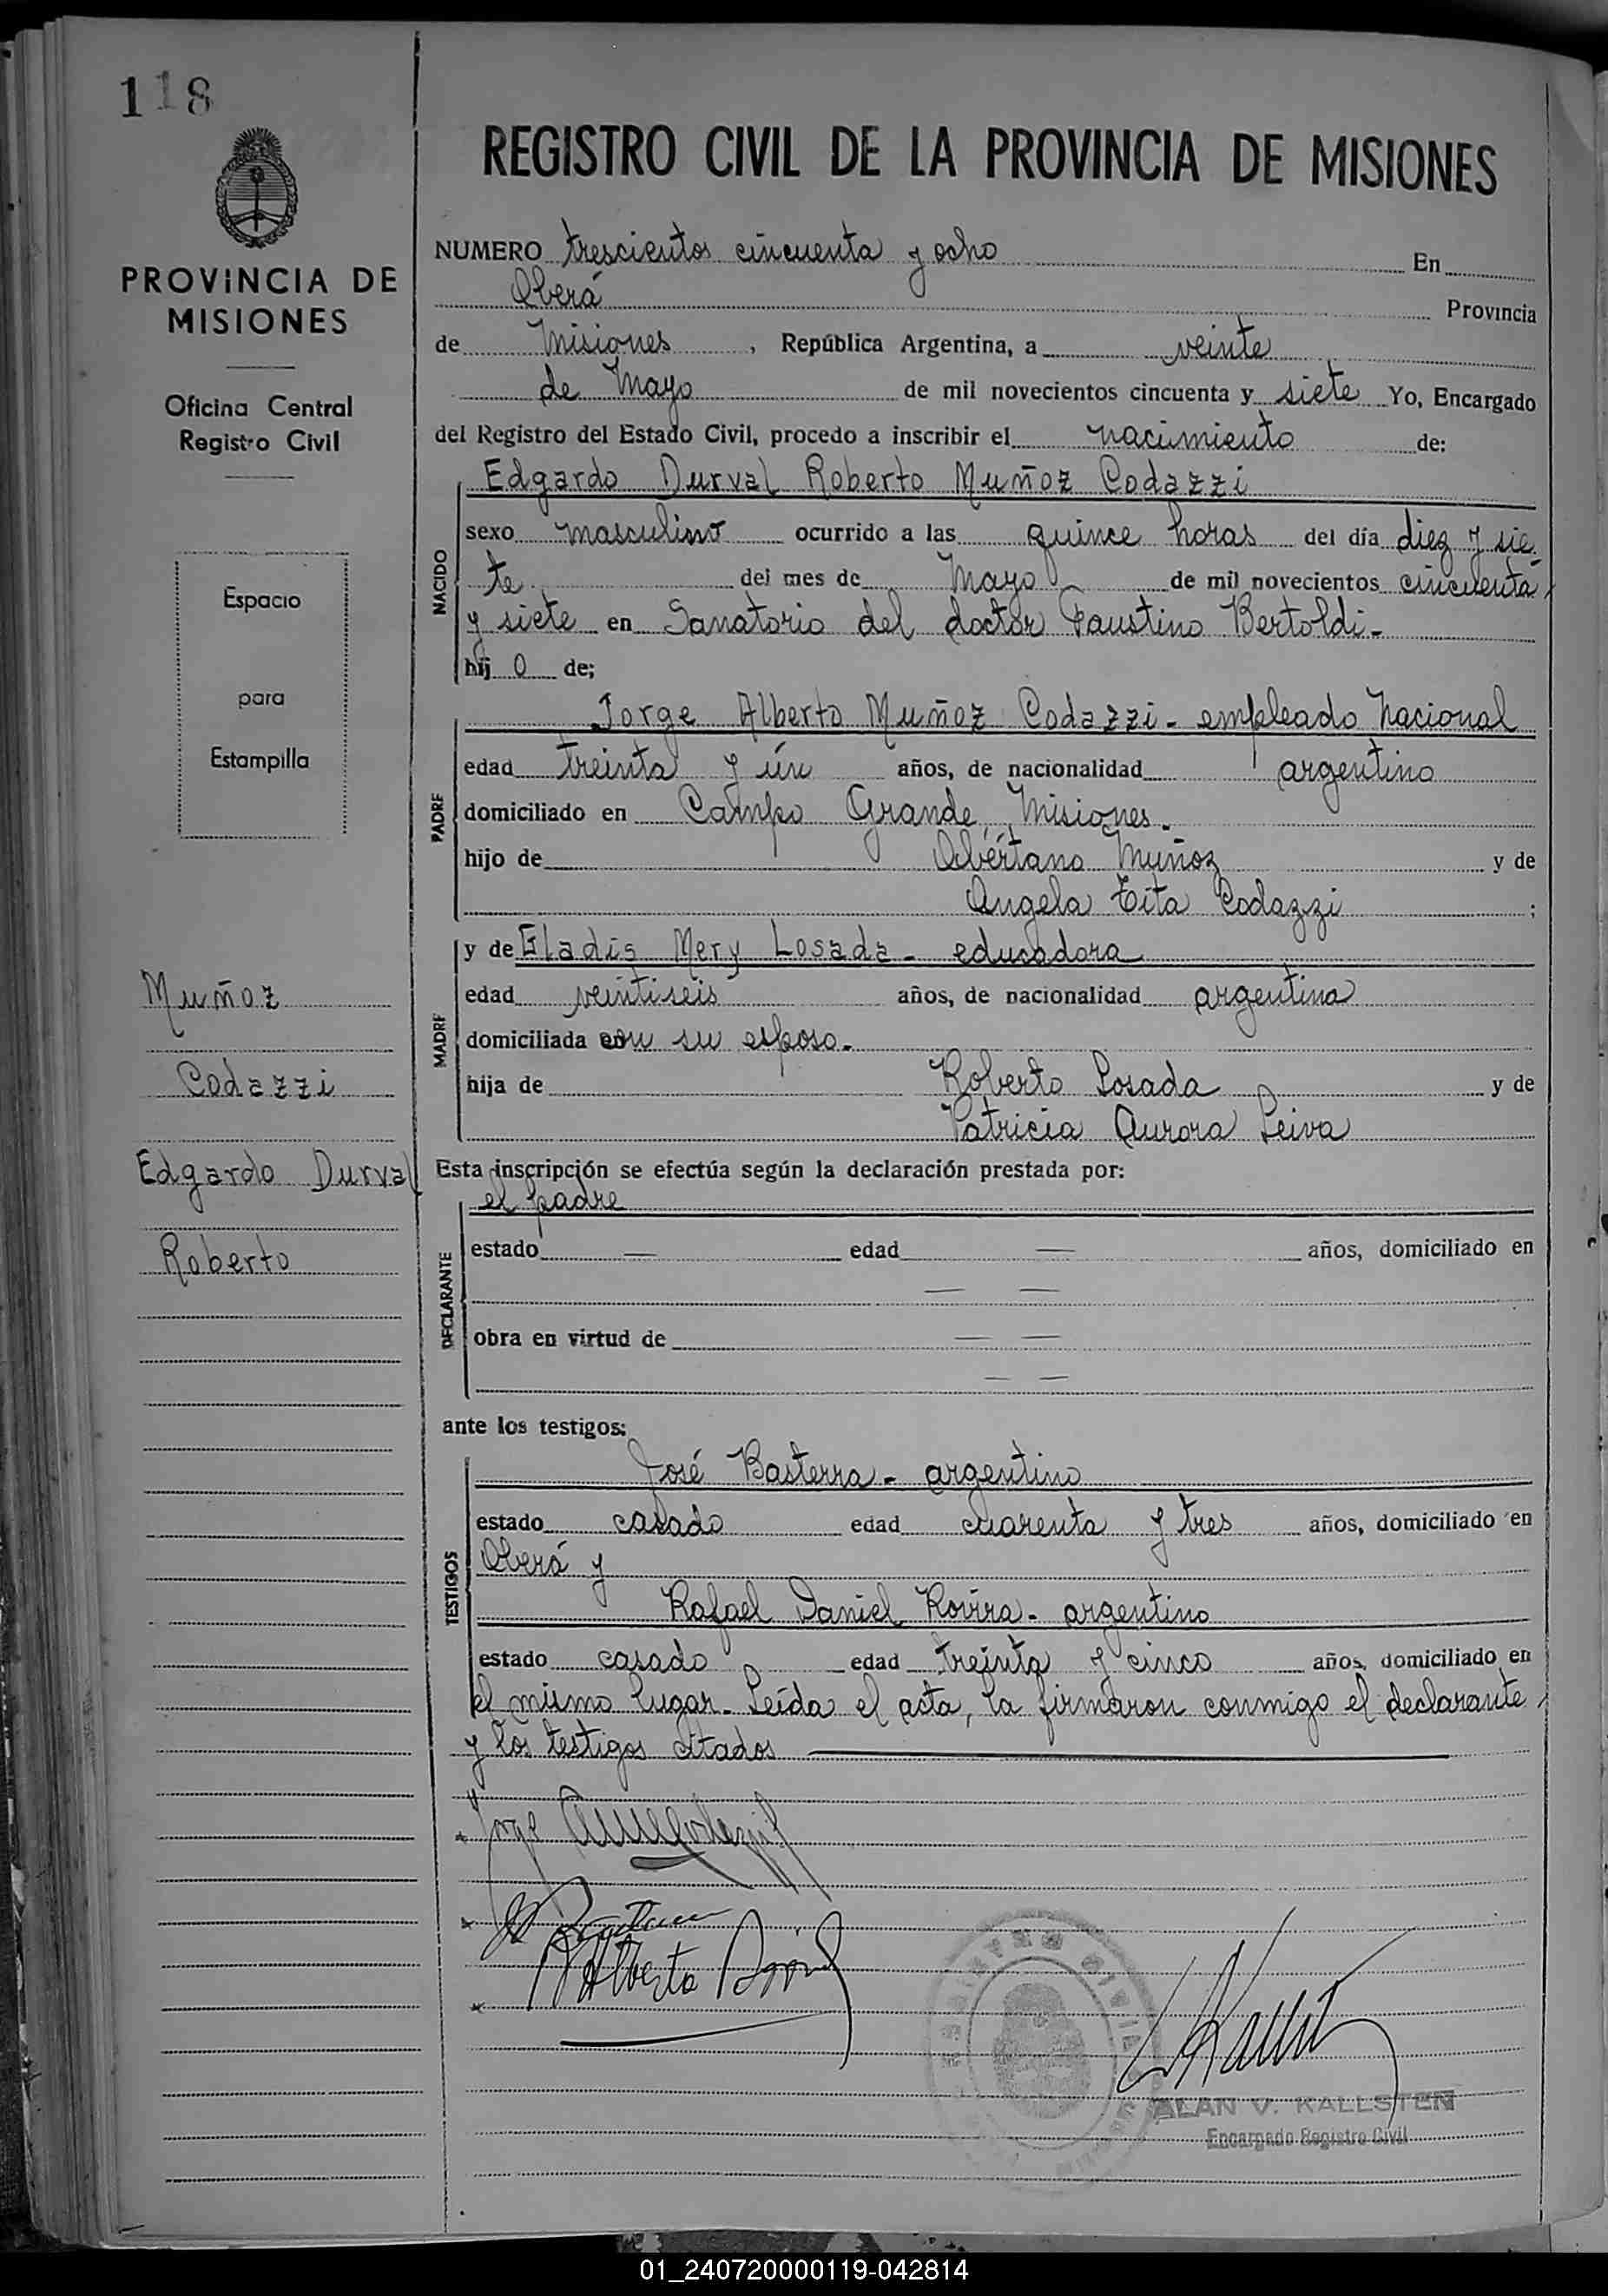 118
REGISTRO CIVIL DE LA PROVINCIA DE MISIONES
PROVINCIA DE
MISIONES
Oficina Central
Registro Civil
Espacio
para
Estampilla
Muñoz
Codazzi
Edgardo Durval
Roberto
NUMERO trescientos cincuenta y ocho En
Oberá Provincia
de Misiones, República Argentina, a veinte
de Mayo de mil novecientos cincuenta y siete Yo, Encargado
del Registro del Estado Civil, procedo a inscribir el nacimiento de:
Edgardo Durval Roberto Muñoz Codazzi
NACIDO
sexo masculino ocurrido a las quince horas del día diez y sie
te del mes de Mayo de mil novecientos cincuenta
y siete en Sanatorio del doctor Faustino Bertoldi-
hij o de;
Jorge Alberto Muñoz Codazzi - empleado nacional
PADRE
edad treinta y ún años, de nacionalidad argentino
domiciliado en Campo Grande, Misiones.
hijo de Obértano Muñoz y de
Angela Tita Codazzi ;
y de Gladis Mery Losada - educadora
MADRE
edad veintiseis años, de nacionalidad argentina
domiciliada con su esposo.
hija de Roberto Losada y de
Patricia Aurora Leiva
Esta inscripción se efectúa según la declaración prestada por:
el padre
DECLARANTE
estado — edad — años, domiciliado en
— —
obra en virtud de — —
— —
ante los testigos:
José Basterra - argentino
TESTIGOS
estado casado edad cuarenta y tres años, domiciliado en
Oberá y
Rafael Daniel Rovira - argentino
estado casado edad treinta y cinco años, domiciliado en
el mismo lugar. Leída el acta, la firmaron conmigo el declarante
y los testigos citados
Jorge
Alberto
REGISTRO CIVIL
ALAN V. KALLSTEN
Encargado Registro Civil
01_240720000119-042814